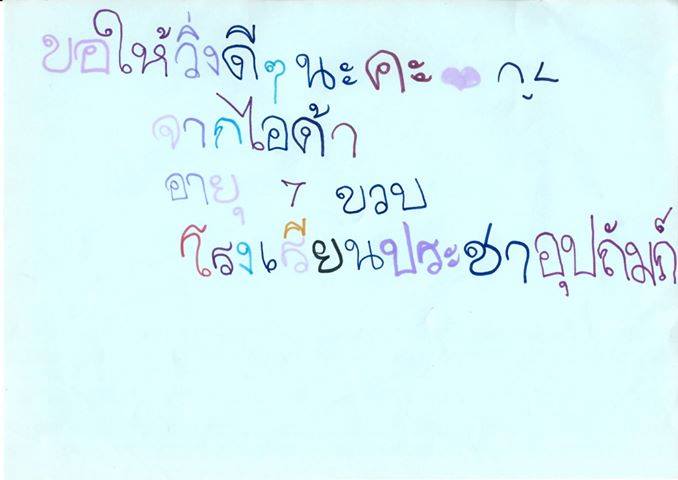 ขอให้วิ่งดีๆนะคะ
จากไอด้า
อายุ 7 ขวบ
โรงเรียนประชาอุปถัมภ์